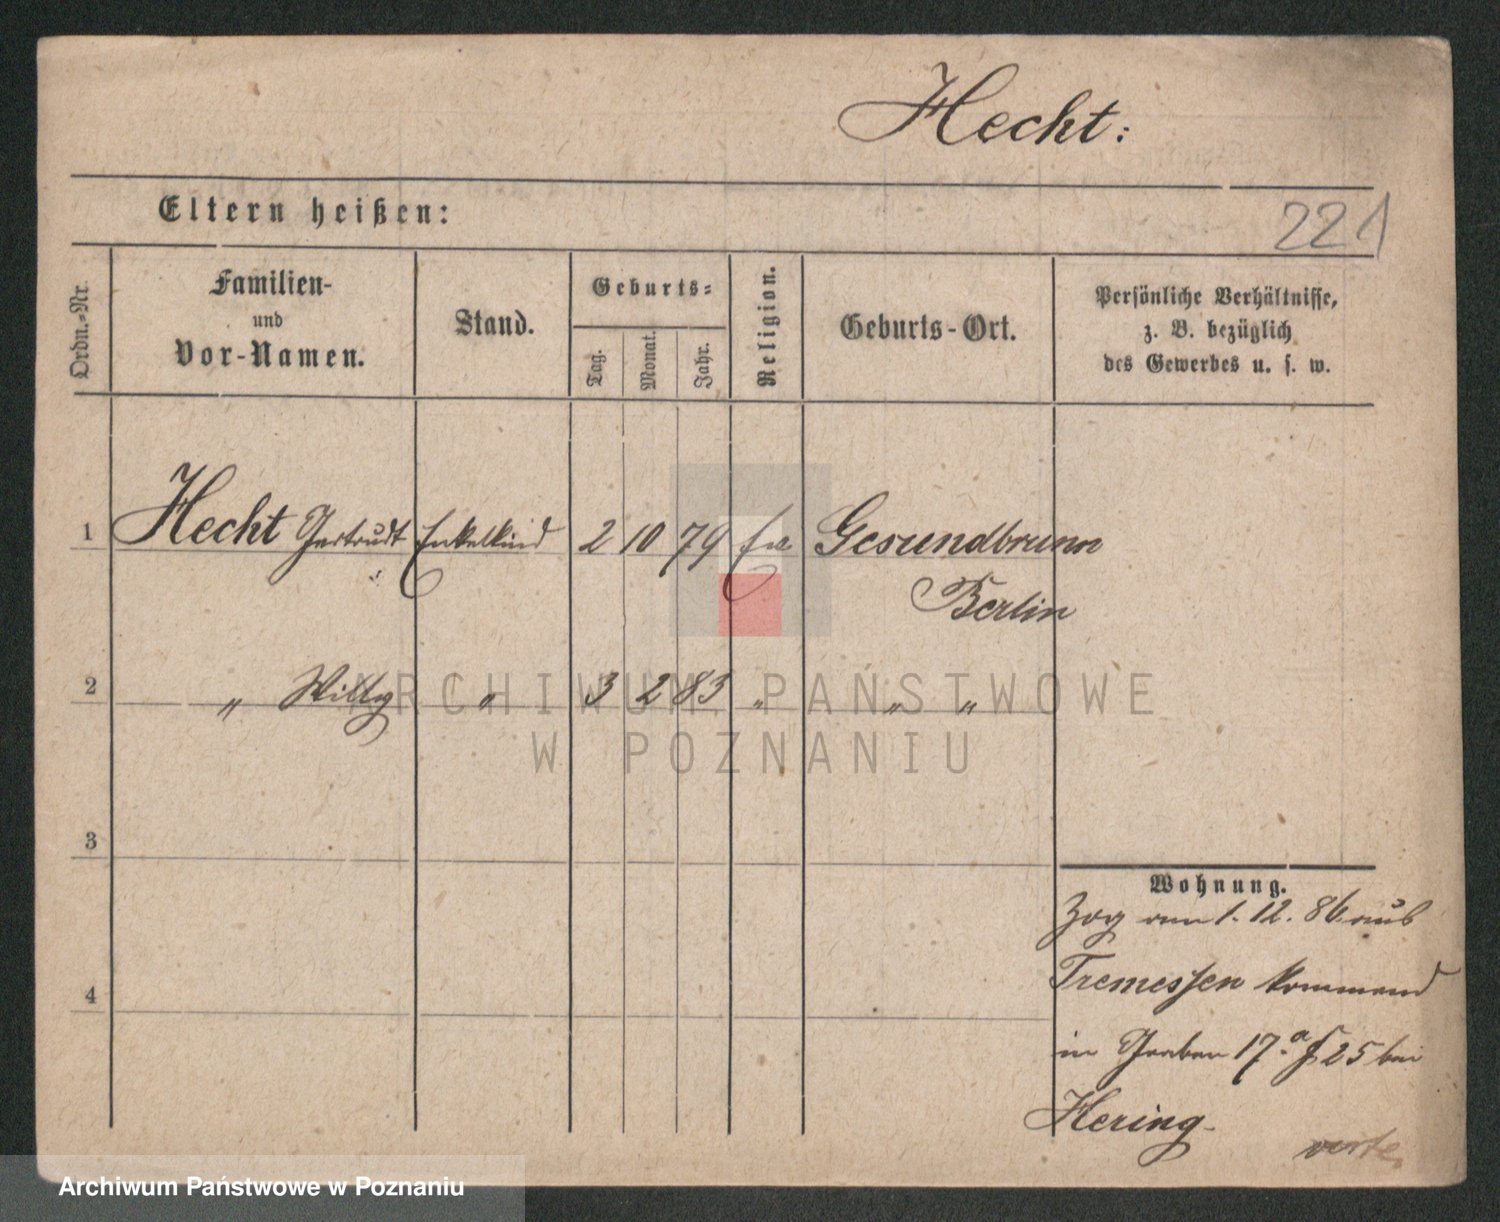 Hecht:
Eltern heißen:
221
Ordn.-Nr.
Familien-
und
Vor-Namen.
Stand.
Geburts-
Tag.
Monat.
Jahr.
Religion.
Geburts-Ort.
Persönliche Verhältnisse,
z. B. bezüglich
des Gewerbes u. s. w.
1 Hecht Gertrudt Enkelkind 2 10 79 Gesundbrunn
Berlin
2 " Willy " 3 2 83 " " "
3
4
Wohnung.
Zog am 1. 12. 86 aus
Tremessen kommend
in Graben 17. a 25 bei
Hering.
verte
ARCHIWUM PAŃSTWOWE
W POZNANIU
Archiwum Państwowe w Poznaniu